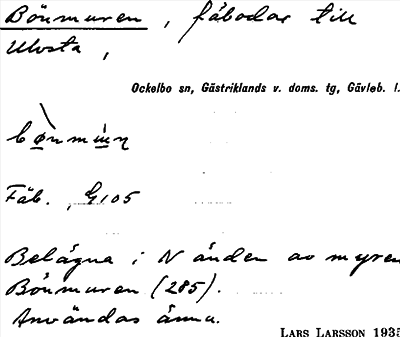 Bönmuren, fäbodar till
Ulvsta,
Ockelbo sn, Gästriklands v. doms. tg, Gävleb. l.
Fäb. G105
Belägna i N änden av myren
Bönmuren (285).
Användas ännu.
LARS LARSSON 1935